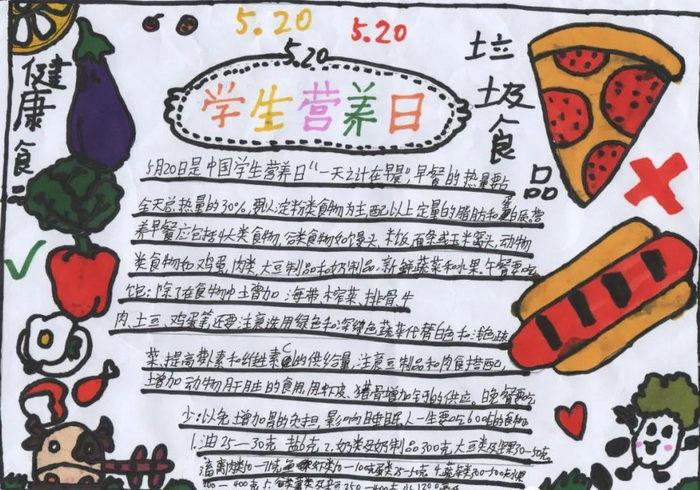 5.20
5.20
5.20
学生营养日
健康食品
垃圾食品
5月20日是中国学生营养日"一天之计在早晨，早餐的热量要占
全天总热量的30%，要以淀粉类食物为主配以上定量的脂肪和蛋白质，营
养早餐应包括4大类食物，谷类食物如馒头、面条或玉米窝头，动物
类食物如鸡蛋，肉类，大豆制品和奶制品，新鲜蔬菜和水果，午餐要吃
饱：除了在食物中增加 海带 榨菜、排骨、牛
肉、土豆、鸡蛋等，还要注意选用绿色和深绿色蔬菜代替白色和浅色蔬
菜，提高素和纤维素C的供给量，注意豆制品和肉食搭配
增加动物肝脏的食用，用虾皮、猪骨增加钙的供应。晚餐要吃
少：以免增加胃的负担，影响睡眠人一生要吃60吨的食物
1.油25—30克 盐6克 2.奶类及奶制品300克，大豆类及坚果30-50克